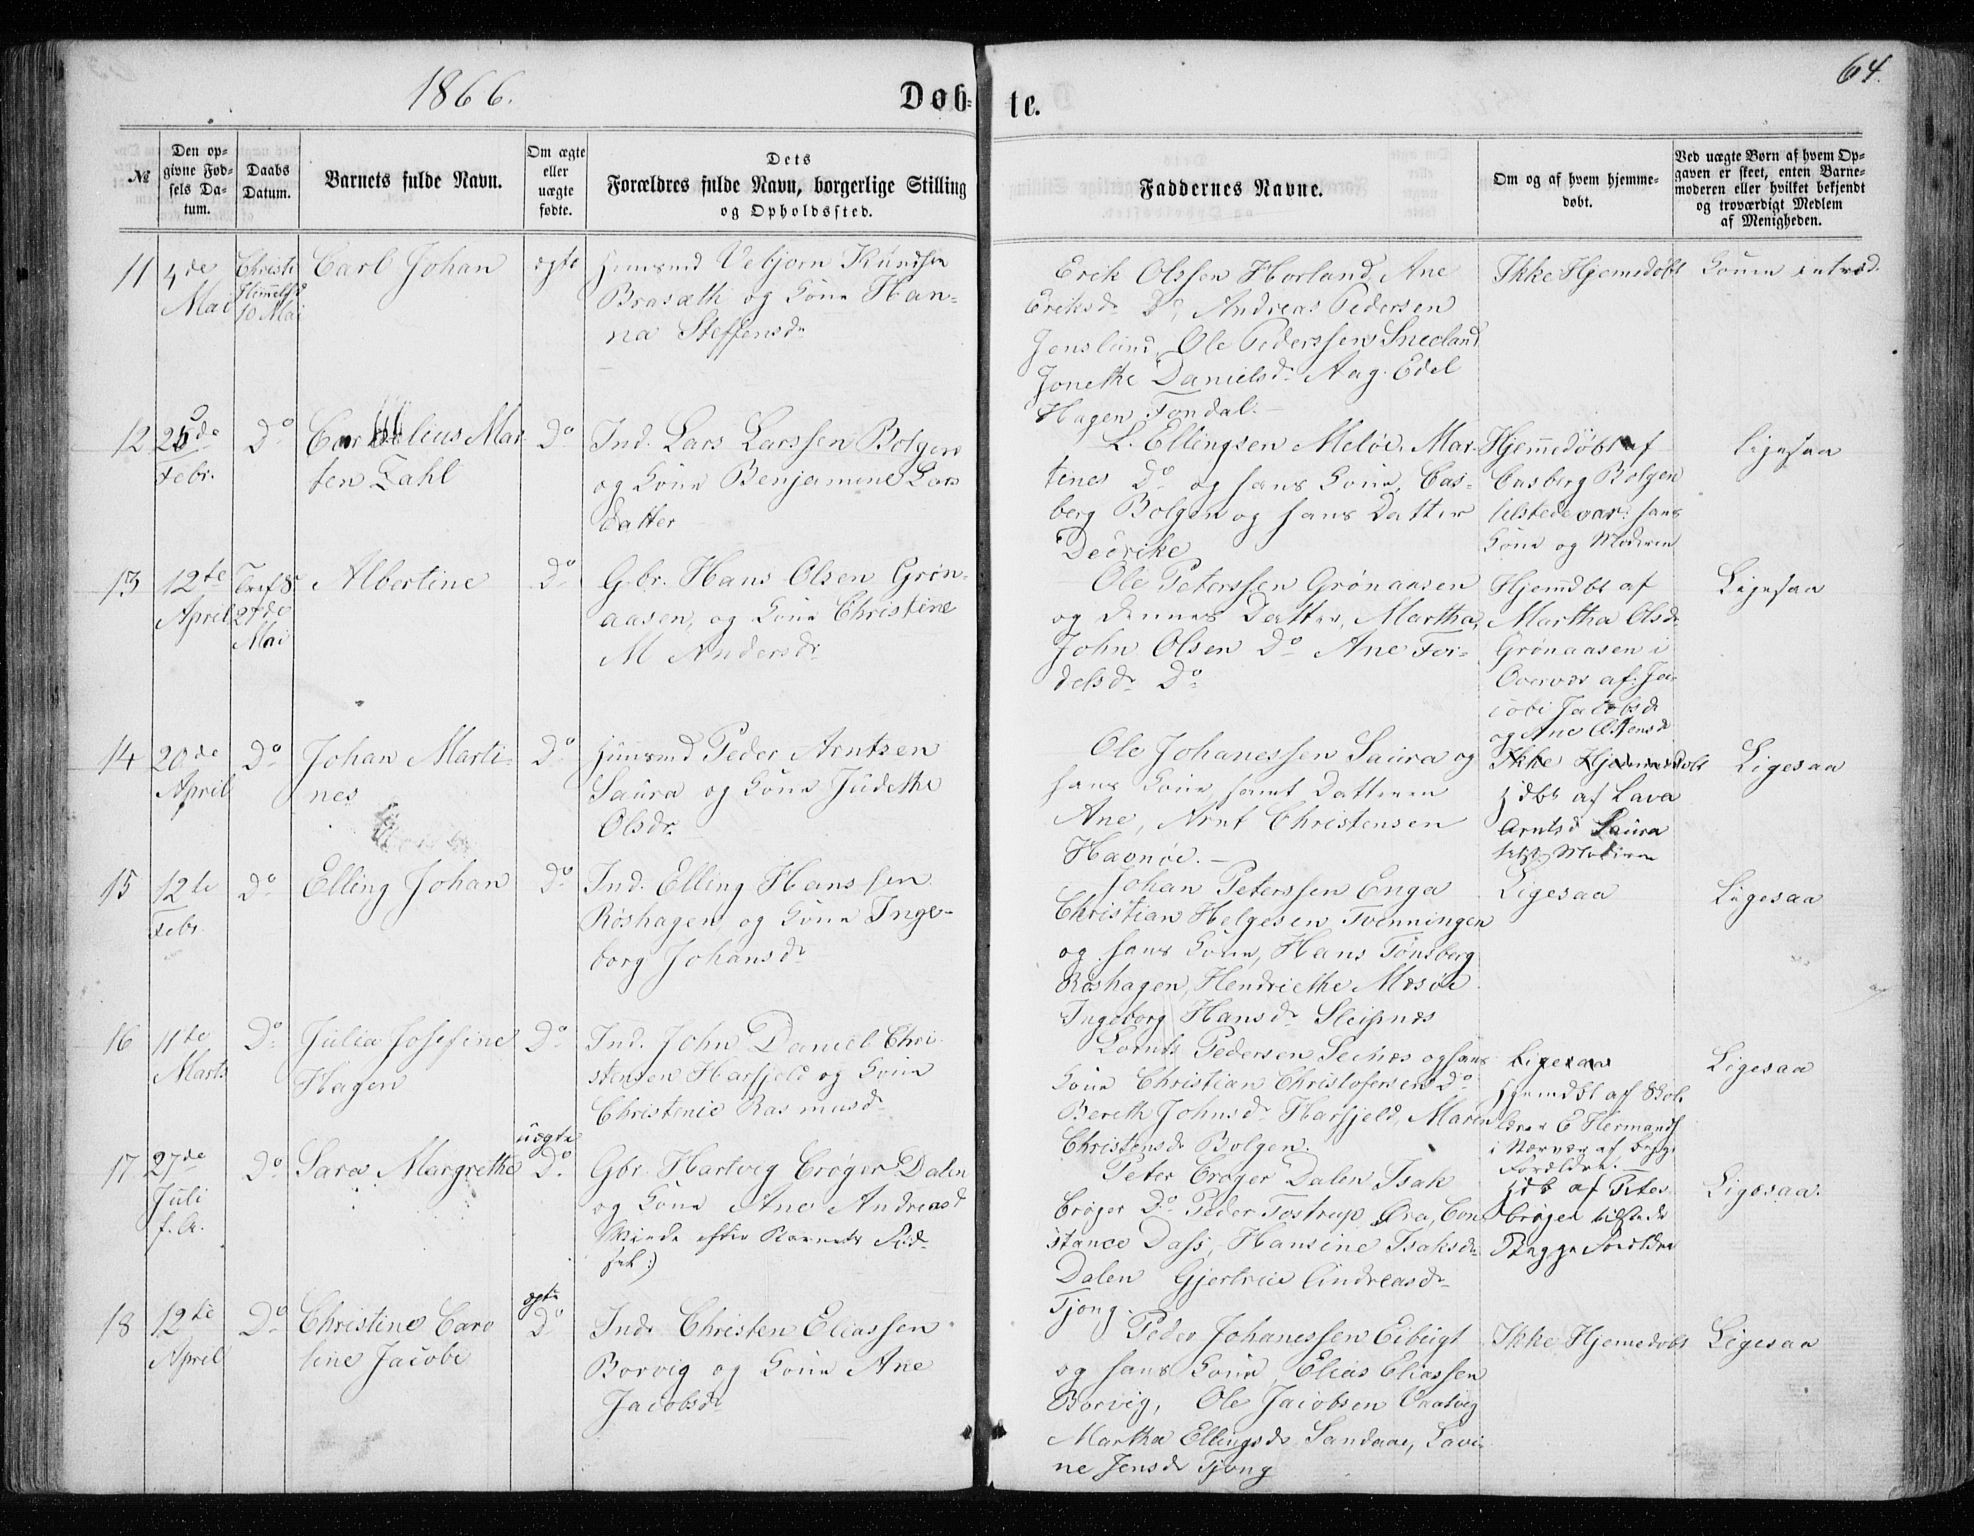 1866.
Døb-
te.
64.
№
Den op-
givne Fød-
sels Da-
tum.
Daabs
Datum.
Barnets fulde Navn.
Om ægte
eller
uægte
fødte.
Dets
Forældres fulde Navn, borgerlige Stilling
og Opholdssted.
Faddernes Navne.
Om og af hvem hjemme-
døbt.
Ved uægte Børn af hvem Op-
gaven er skeet, enten Barne-
moderen eller hvilket bekjendt
og troværdigt Medlem
af Menigheden.
11
4de
Mai
Christi
Himelfd
10 Mai
Carl Johan
ægte
Huusmd Vebjørn Knudsen
Brasæth og Kone Han-
na Steffensdr
Erik Olssen Horland, Ane
Eriksdr Do, Andreas Pedersen
Jenslund, Ole Pederssen Sneeland
Jonethe Danielsdr Aag. Edel
Hagen Fondal.
Ikke Hjemedøbt
Konen introd.
12
25de
Febr.
Do
Cornelius Mar
ten Zahl
Do
Ind. Lars Larssen Bolgen
og Kone Benjamine Lars
datter
L. Ellingsen Meløe, Mar-
tines Do og hans Kone, Cas-
berg Bolgen og hans Datter
Dedrike
Hjemmedøbt af
Casberg Bolgen
tilstede var: hans
Kone og Moderen
Ligesaa
13
12te
April
Tref. S.
27de
Mai
Albertine
Do
Gbr. Hans Olsen Grøn-
aasen, og Kone Christine
M Andersdr
Ole Peterssen Grønaasen
og dennes Datter, Martha,
John Olsen Do Ane Fei-
delsdr Do
Hjemdbt af
Martha Olsdr
Grønaasen i
Overvær af: Ja-
cobi Jacobsdr
og Ane Olsensdr
Ligesaa
14
20de
April
Do
Johan Marti-
nes
Do
Huusmd Peder Arntsen
Saura og Kone Judethe
Olsdr.
Ole Johanessen Saura og
hans Kone, samt Datteren
Ane, Arnt Christensen
Havnøe.
Ikke Hjemmedøbt
Hjdbt af Lava
Arntsd Saura
tilst. Moderen
Ligesaa
15
12te
Febr
Do
Elling Johan
Do
Ind. Elling Hanssen
Røshagen og Kone Inge-
borg Johansdr
Johan Peterssen Enga
Christian Helgesen Tvenningen
og hans Kone, Hans Tønsberg
Røshagen, Hendriethe Mesøe
Ingeborg Hansdr Sleipnes
Ligesaa
Ligesaa
16
11te
Marts
Do
Julia Josefine
Hagen
Do
Ind. John Daniel Chri-
stensen Harfjeld og Kone
Christenie Rasmusdr
Lornts Pedersen Selnes og hans
Kone Christian Christofersen Do
Bereth Johnsdr Harfjeld, Maren
Christensdr Bolgen.
Ligesaa
Hjemdbt af Skol-
lærer E Hermans
i Nærvær af begge
Forældre.
Ligesaa
17
27de
Juli
f. A.
Do
Sara Margrethe
uægte
Do.
Gbr. Hartvig Crøger Dalen
og Kone Ane Andreasd
(Viede efter Barnets Fød-
sel:)
Peter Crøger Dalen Isak
Crøger Do Peder Tostrup Øra, Con
stance Dass, Hansine Isaksdr
Dalen Gjertrue Andreasdr
Tjong.
Hjdb af Peter
Crøger tilstede
Begge Forældre
Ligesaa.
18
12te
April
Do
Christine Caro
line Jacobe
ægte
Do
Indr Christen Eliassen
Borvig og Kone Ane
Jacobsdr
Peder Johanessen Eibugt
og hans Kone, Elias Eliassen
Borvig, Ole Jacobsen Vaatvig
Martha Ellingsdr Sandaae, Lavi-
ne Jensdr Tjong
Ikke Hjemedøbt
Ligesaa